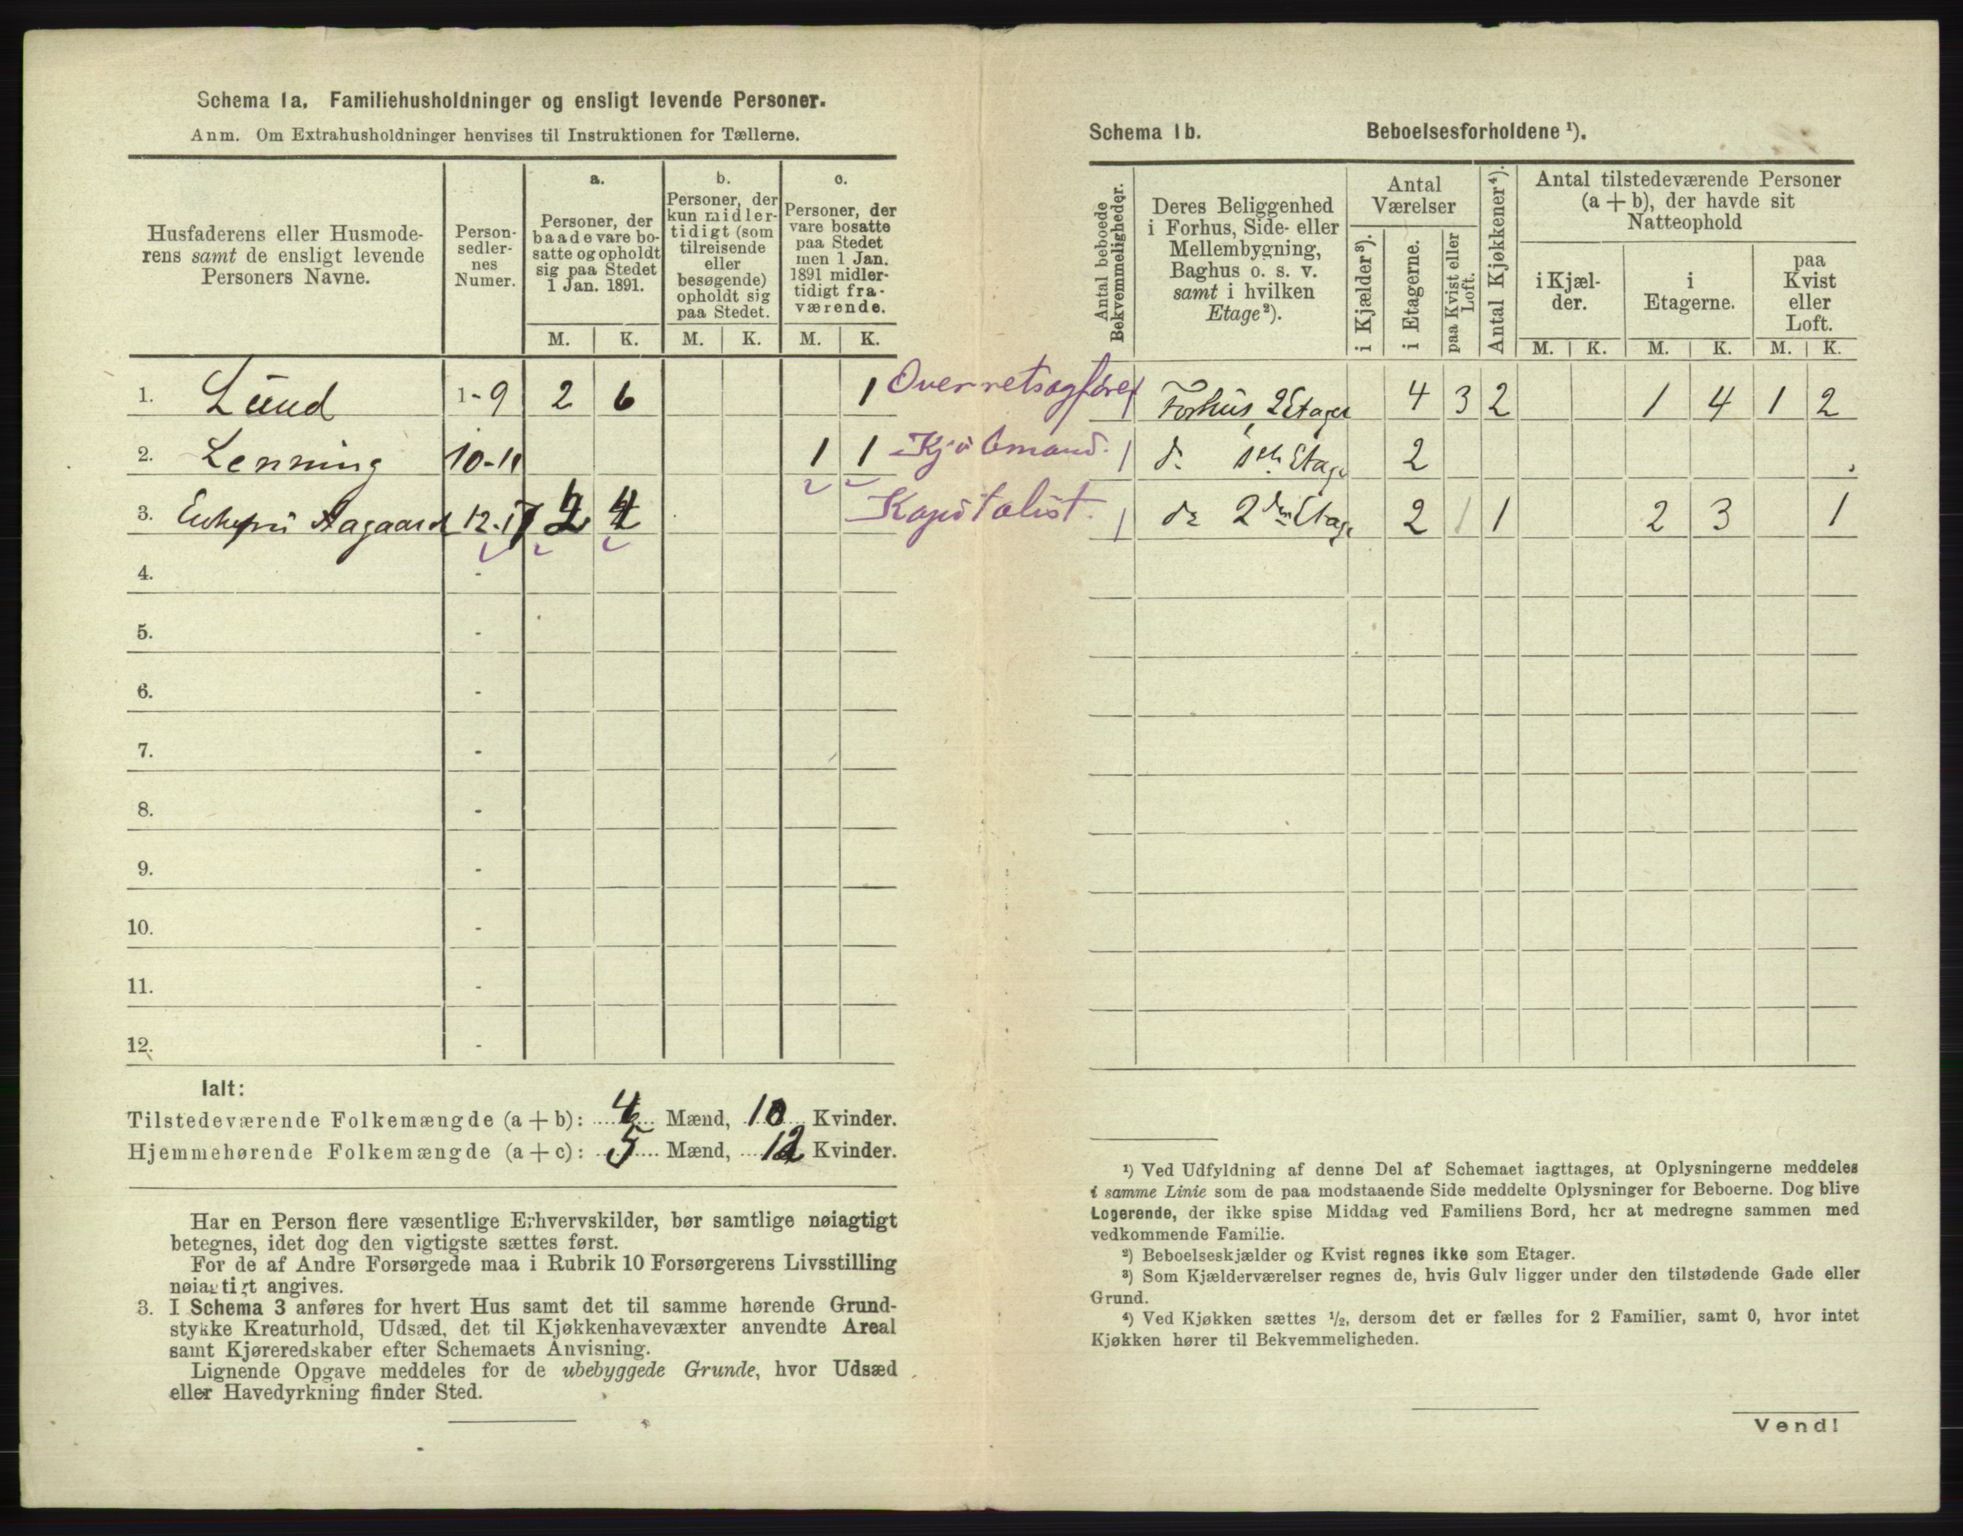 Schema 1a. Familiehusholdninger og ensligt levende Personer.
Anm. Om Extrahusholdninger henvises til Instruktionen for Tællerne.
Husfaderens eller Husmoderens samt de ensligt levende Personers Navne.
Person-sedler-nes Numer.
a.
Personer, der baade vare bosatte og opholdt sig paa Stedet 1 Jan. 1891.
b.
Personer, der kun midlertidigt (som tilreisende eller besøgende) opholdt sig paa Stedet.
c.
Personer, der vare bosatte paa Stedet men 1 Jan. 1891 midlertidigt fraværende.
M. K. M. K. M. K.
1. Lund 1-9 2 6 1 Overretsagfører
2. Lenning 10-11 1 1 Kjøbmand.
3. Enkefru Aagaard 12-17 2 4 Kapitalist.
4. -
5. -
6. -
7. -
8. -
9. -
10. -
11. -
12. -
Ialt:
Tilstedeværende Folkemængde (a + b): 4 Mænd, 10 Kvinder.
Hjemmehørende Folkemængde (a + c): 5 Mænd, 12 Kvinder.
Har en Person flere væsentlige Erhvervskilder, bør samtlige nøiagtigt
betegnes, idet dog den vigtigste sættes først.
For de af Andre Forsørgede maa i Rubrik 10 Forsørgerens Livsstilling
nøiagtigt angives.
3. I Schema 3 anføres for hvert Hus samt det til samme hørende Grund-
stykke Kreaturhold, Udsæd, det til Kjøkkenhavevæxter anvendte Areal
samt Kjøreredskaber efter Schemaets Anvisning.
Lignende Opgave meddeles for de ubebyggede Grunde, hvor Udsæd
eller Havedyrkning finder Sted.
Schema 1b. Beboelsesforholdene ¹).
Antal beboede Bekvemmeligheder.
Deres Beliggenhed i Forhus, Side- eller Mellembygning, Baghus o. s. v. samt i hvilken Etage²).
Antal Værelser
i Kjælder³).
i Etagerne.
paa Kvist eller Loft.
Antal Kjøkkener⁴).
Antal tilstedeværende Personer (a + b), der havde sit Natteophold
i Kjælder.
i Etagerne.
paa Kvist eller Loft.
M. K. M. K. M. K.
1 Forhus, 2 Etager 4 3 2 1 4 1 2
1 do 1ste Etage 2
1 do 2den Etage 2 1 1 2 3 1
¹) Ved Udfyldning af denne Del af Schemaet iagttages, at Oplysningerne meddeles
i samme Linie som de paa modstaaende Side meddelte Oplysninger for Beboerne. Dog blive
Logerende, der ikke spise Middag ved Familiens Bord, her at medregne sammen med
vedkommende Familie.
²) Beboelseskjælder og Kvist regnes ikke som Etager.
³) Som Kjælderværelser regnes de, hvis Gulv ligger under den tilstødende Gade eller
Grund.
⁴) Ved Kjøkken sættes ½, dersom det er fælles for 2 Familier, samt 0, hvor intet
Kjøkken hører til Bekvemmeligheden.
Vend!